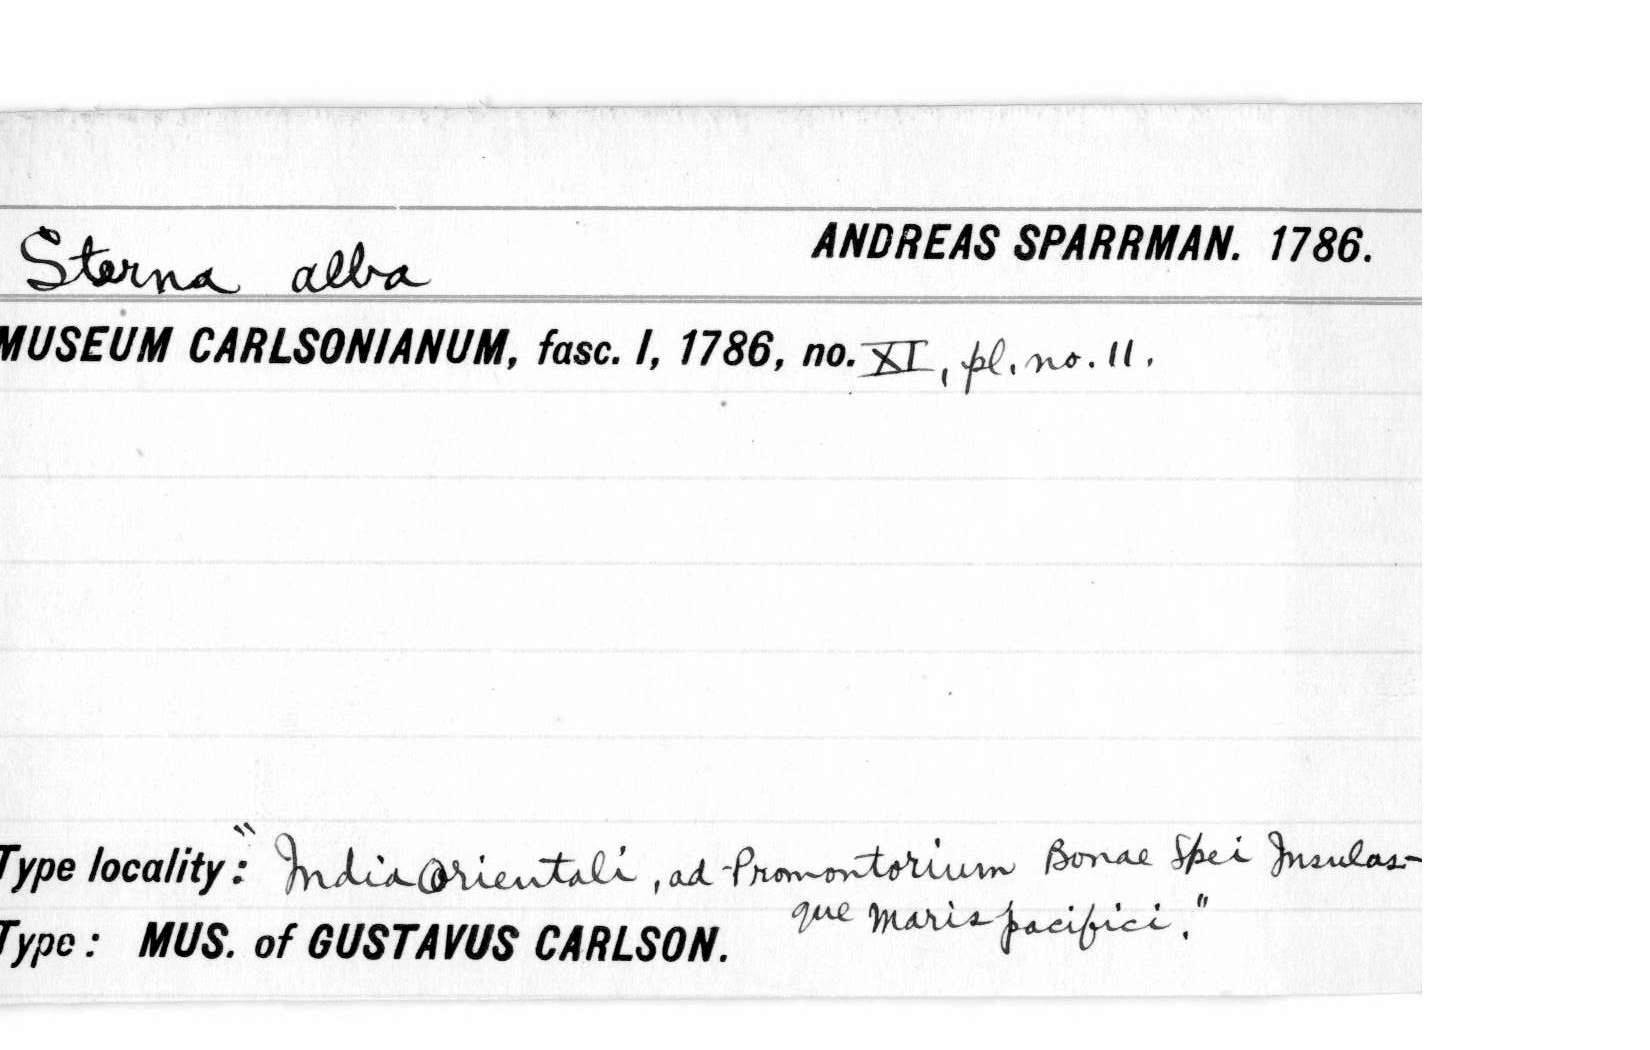 Sterna alba ANDREAS SPARRMAN. 1786.
MUSEUM CARLSONIANUM, fasc. I, 1786, no. XI, pl. no. 11.
Type locality: "India Orientali, ad Promontorium Bonae Spei Insulas-
que Maris pacifici."
Type: MUS. of GUSTAVUS CARLSON.